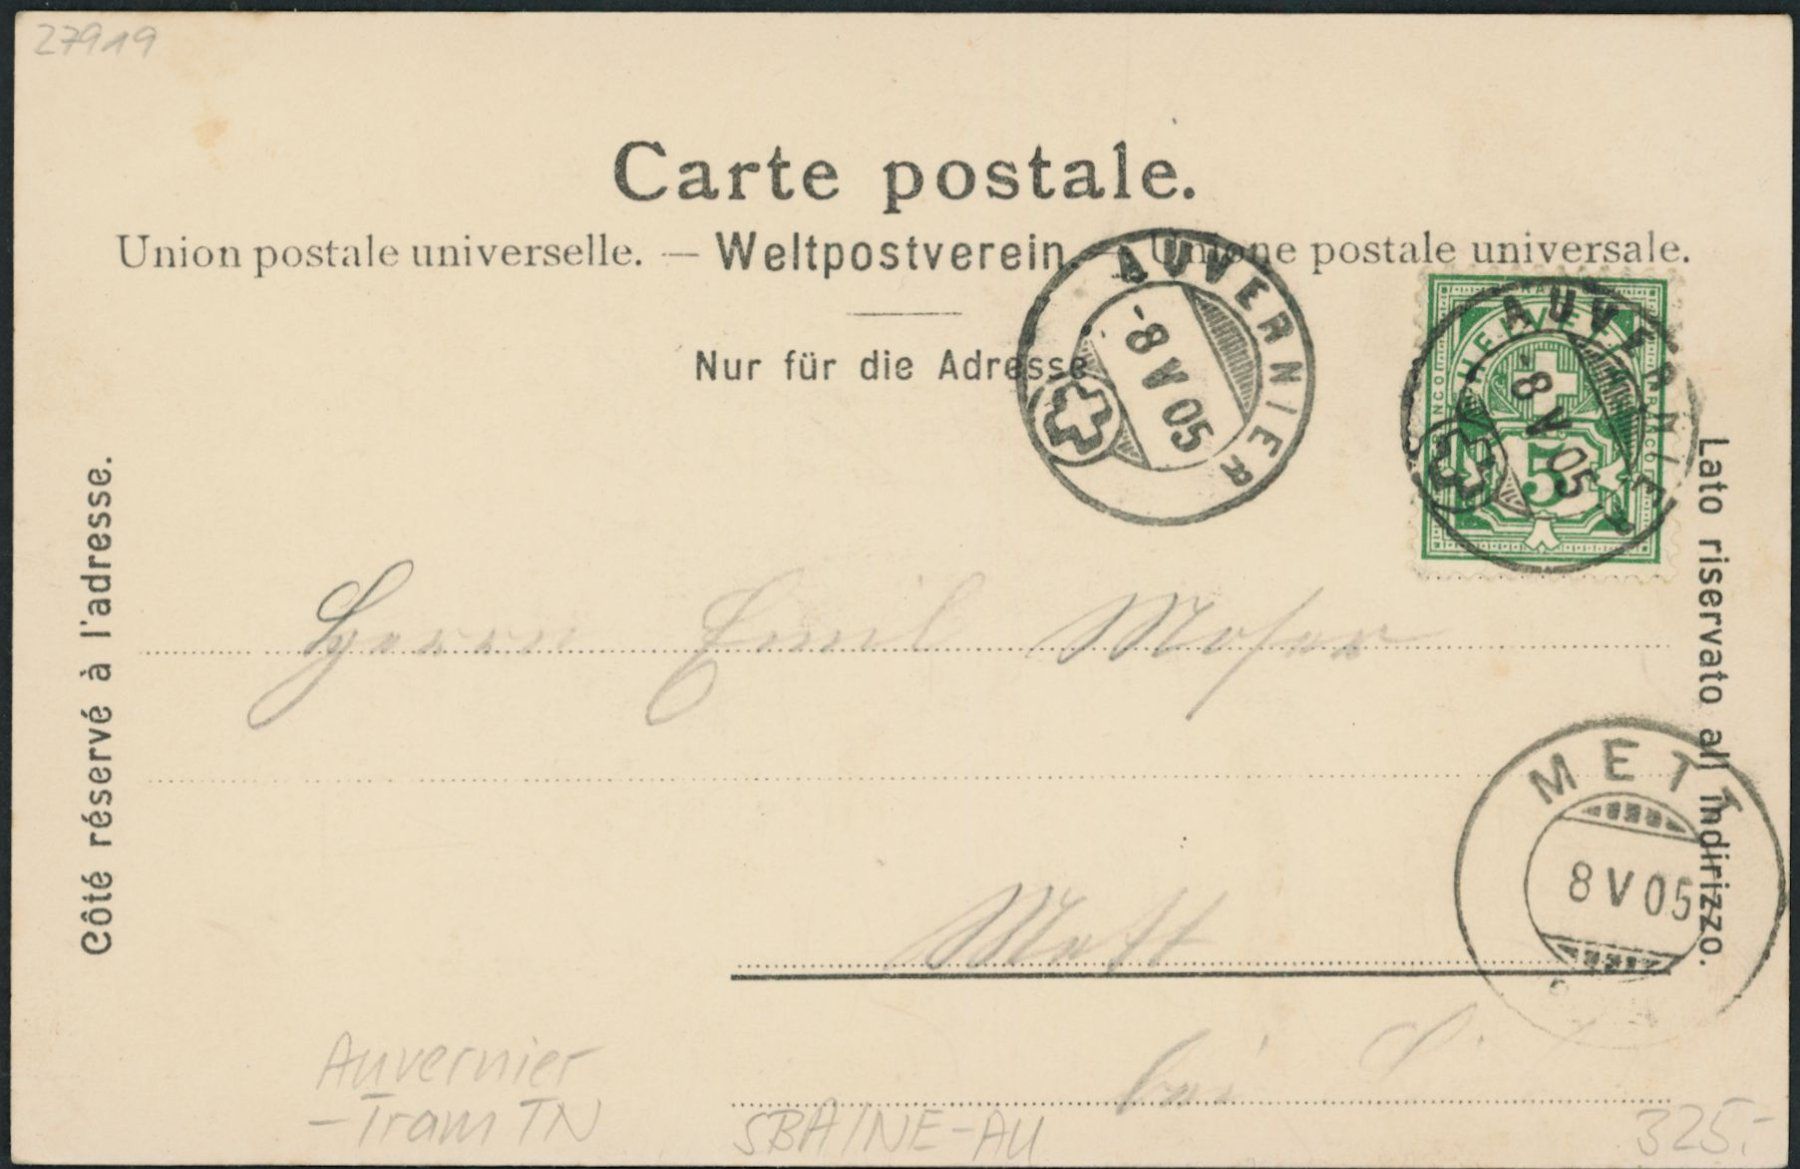 27919
Carte postale.
Union postale universelle. — Weltpostverein — Unione postale universale.
Nur für die Adresse
AUVERNIER
-8 V 05
FRANCO HELVETIA FRANCO
5
AUVERNIER
-8 V 05
Côté réservé à l'adresse.
Lato riservato all indirizzo.
Herrn Emil Moser
METT
8 V 05
Mett
bei
Auvernier
-Tram TN
SBA/NE-AU
325.-